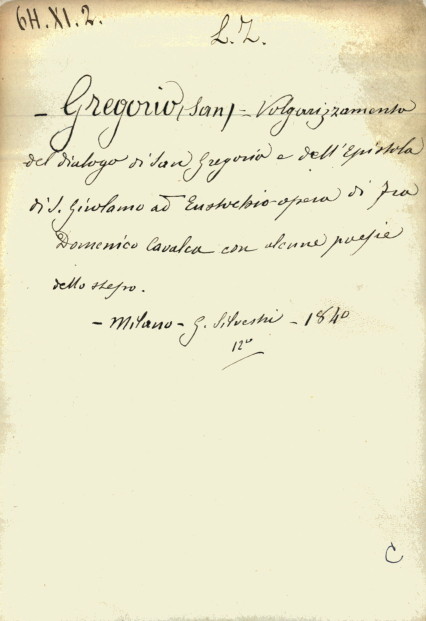 6H.XI.2.
L.Z.
- Gregorio (San) = Volgarizzamento
del dialogo di San Gregorio e dell'Epistola
di S. Girolamo ad Eustochio opera di Fra
Domenico Cavalca con alcune poesie
dello stesso.
- Milano - G. Silvestri - 1840
12°
C